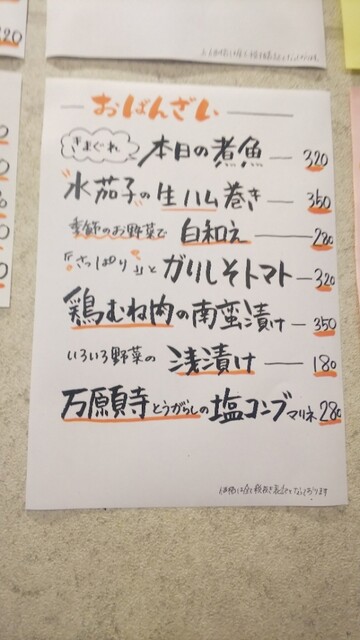 おばんざい
きまぐれ 本日の煮魚 320
水茄子の生ハム巻き 350
季節のお野菜で 白和え 280
「さっぱり」と ガリしそトマト 320
鶏むね肉の南蛮漬け 350
いろいろ野菜の 浅漬け 180
万願寺とうがらしの塩コンブマリネ 280